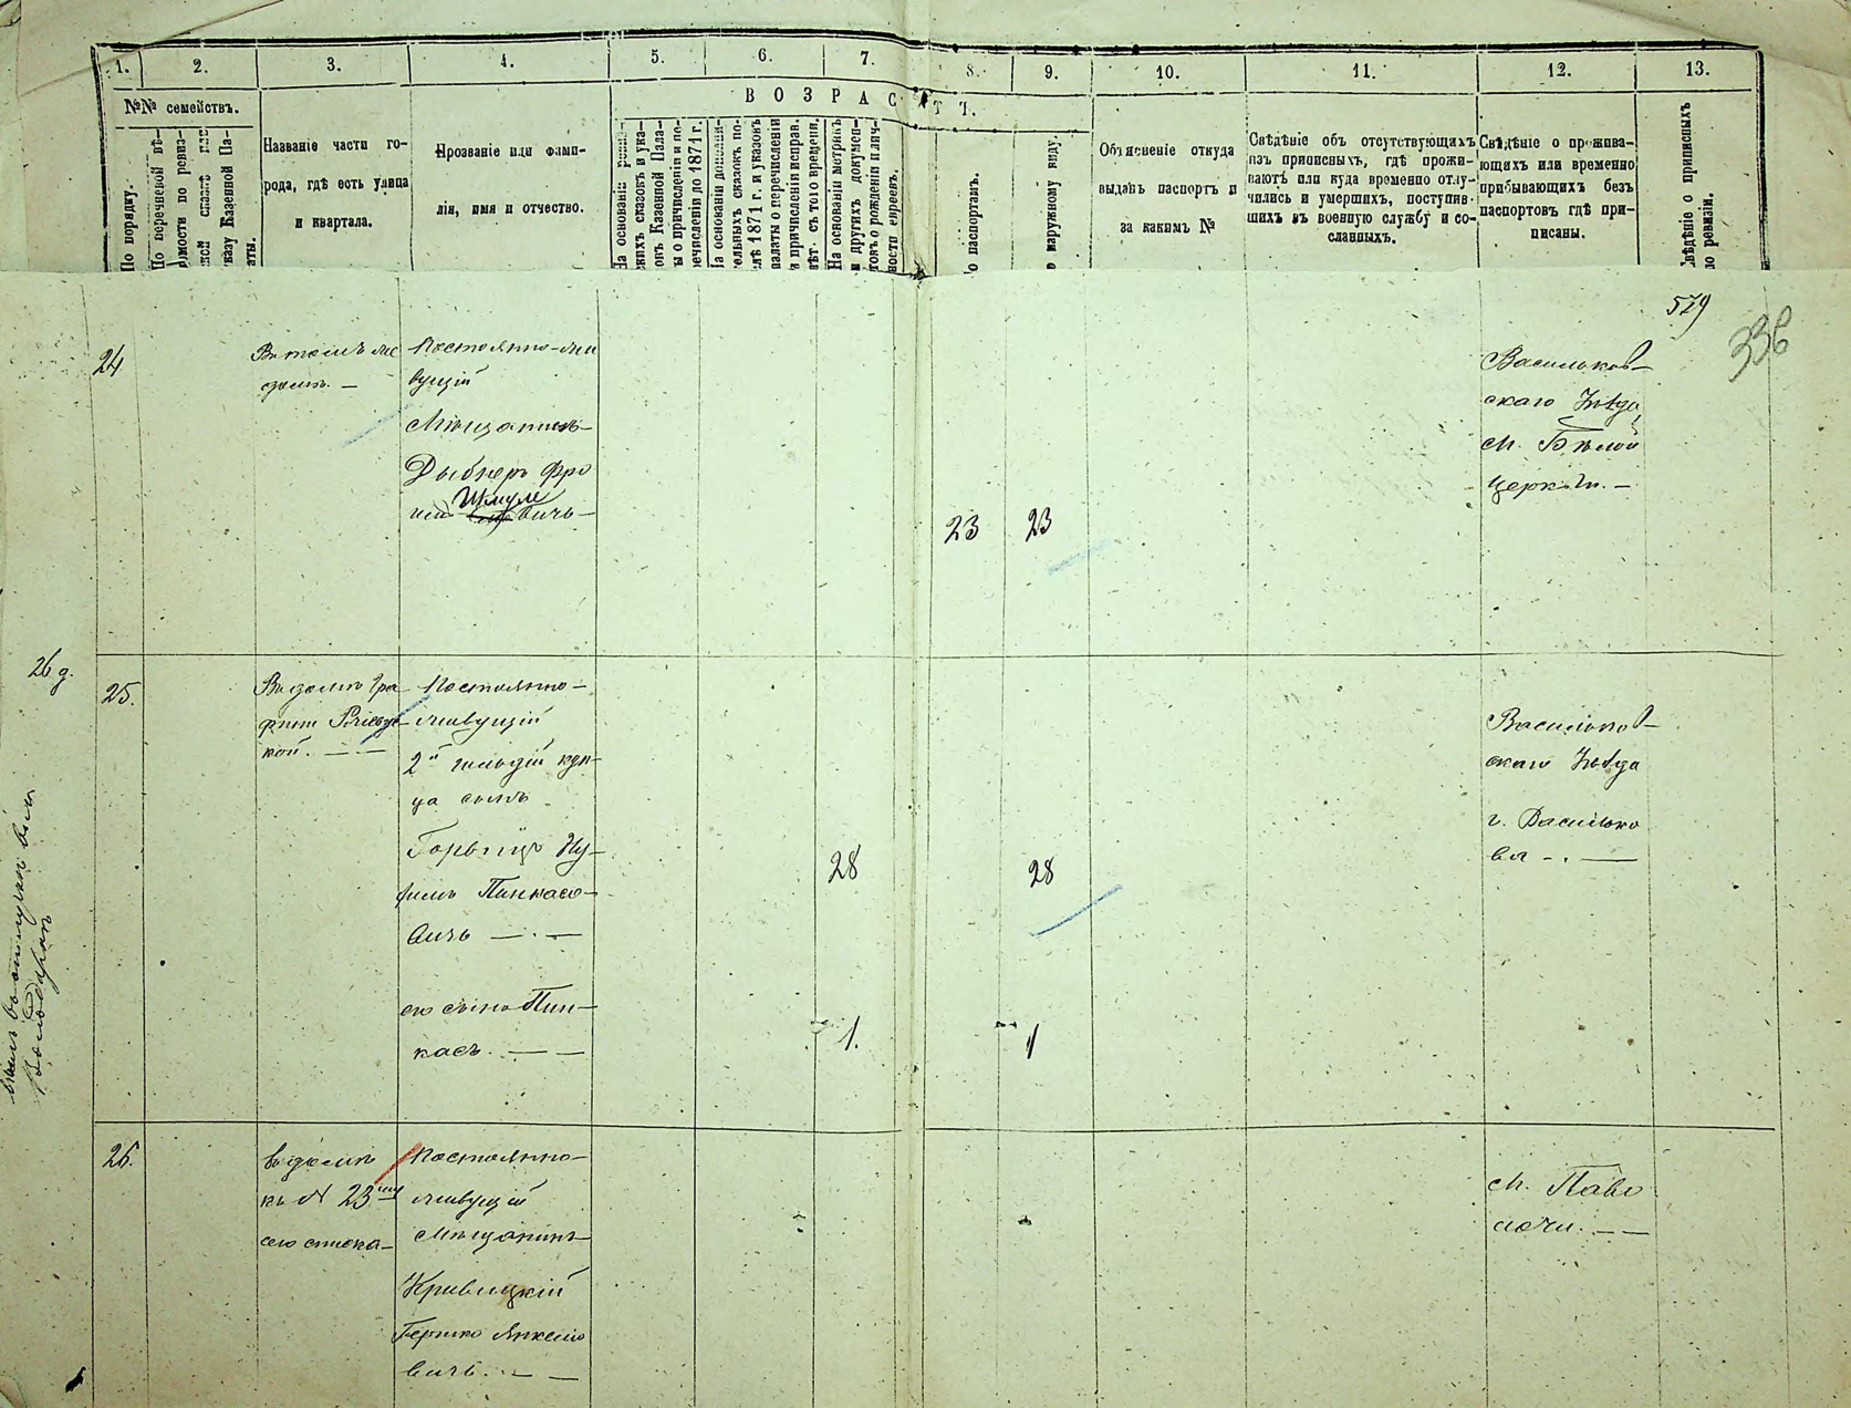 1. 2. 3. 4. 5. 6. 7. 8. 9. 10. 11. 12. 13.
№№ семействъ.
ВОЗРАСТЪ.
По порядку.
По перечневой вѣ-
домости по ревиз-
ской сказкѣ или
указу Казенной Па-
латы.
Названіе части го-
рода, гдѣ есть улица
и квартала.
Прозваніе или фами-
лія, имя и отчество.
На основаніи ревиз-
скихъ сказокъ и ука-
зовъ Казенной Пала-
ты о причисленіи и пе-
речисленіи до 1871 г.
На основаніи дополни-
тельныхъ сказокъ по-
слѣ 1871 г. и указовъ
палаты о перечисленіи
и причисленіи исправ.
лѣт. съ того времени.
На основаніи метрикъ
и другихъ докумен-
товъ о рожденіи и лич-
ности евреевъ.
По паспортамъ.
По наружному виду.
Объясненіе откуда
выданъ паспортъ и
за какимъ №
Свѣдѣніе объ отсутствующихъ
изъ приписныхъ, гдѣ прожи-
ваютъ или куда временно отлу-
чились и умершихъ, поступив-
шихъ въ военную службу и со-
сланныхъ.
Свѣдѣніе о прожива-
ющихъ или временно
прибывающихъ безъ
паспортовъ гдѣ при-
писаны.
Свѣдѣніе о приписныхъ
по ревизіи.
519
336
24
Въ томъ же
домѣ. —
Постоянно-жи
вущій
Мѣщанинъ
Дыбнеръ Фро
имъ Шмуле
вичъ —
23 23
Васильков-
скаго Уѣзда
м. Бѣлой
Церкви. —
26 д.
25.
Въ домѣ Гра
фини
кой. — —
Постоянно-
живущій
2й гильдіи куп-
ца сынъ
Горвицъ Ну-
химъ Пинкасо-
вичъ — . —
28 28
Васильков-
скаго Уѣзда
г. Василько
ва - . —
его сынъ Пин-
касъ. — —
1. 1
26.
въ домѣ
къ № 23му
сего списка
Постоянно-
живущій
Мѣщанинъ
Кривицкій
Гершко Янкелио
вичъ. — —
м. Паво
лочи. — —